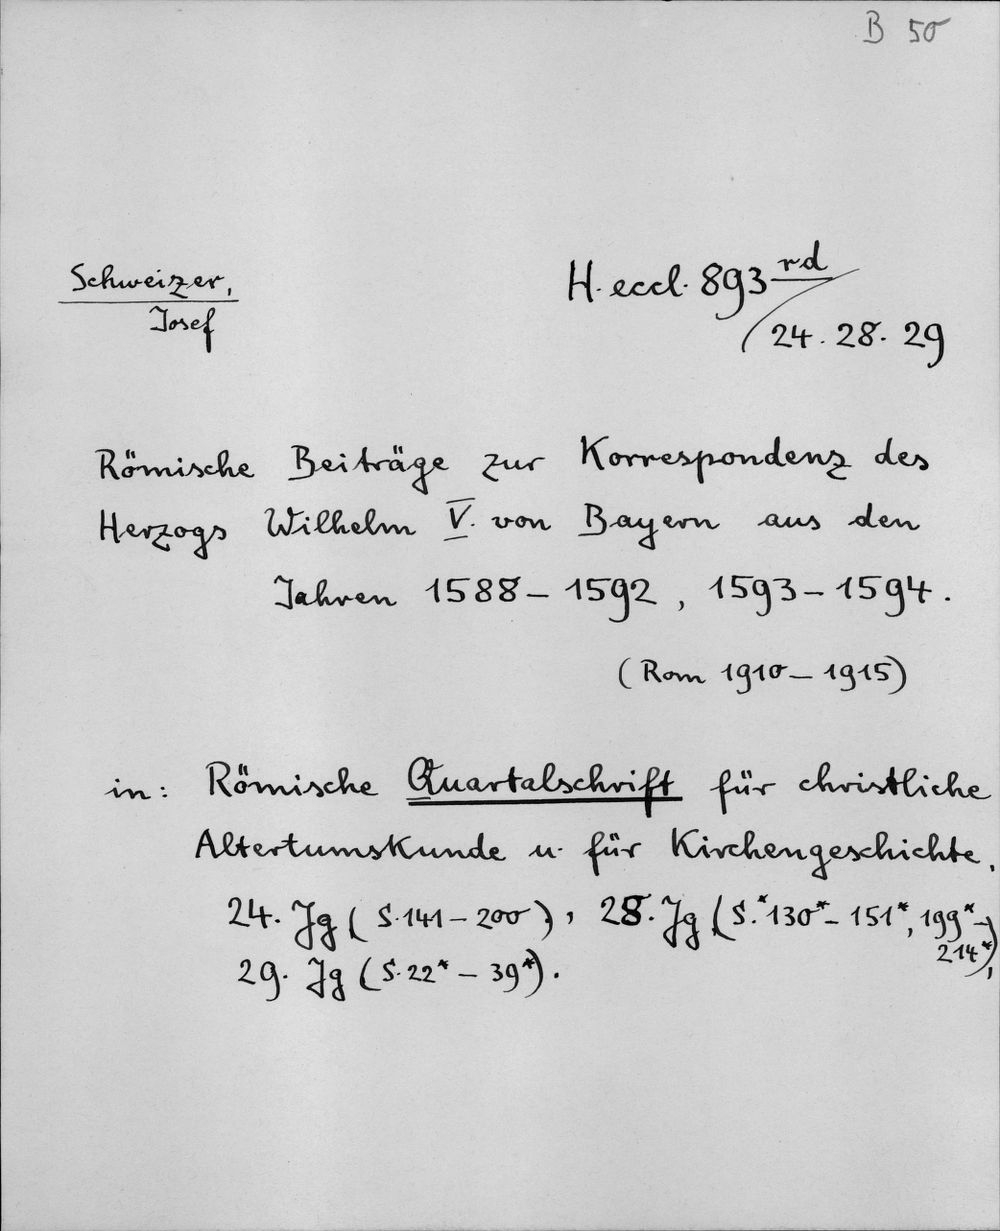 B 50
Schweizer,
Josef
H. eccl. 893 rd
/24. 28. 29
Römische Beiträge zur Korrespondenz des
Herzogs Wilhelm V. von Bayern aus den
Jahren 1588 – 1592, 1593 – 1594.
(Rom 1910 – 1915)
in: Römische Quartalschrift für christliche
Altertumskunde u. für Kirchengeschichte,
24. Jg (S. 141 – 200), 28. Jg (S. *130* – 151*, 199* –
214*),
29. Jg (S. 22* – 39*).